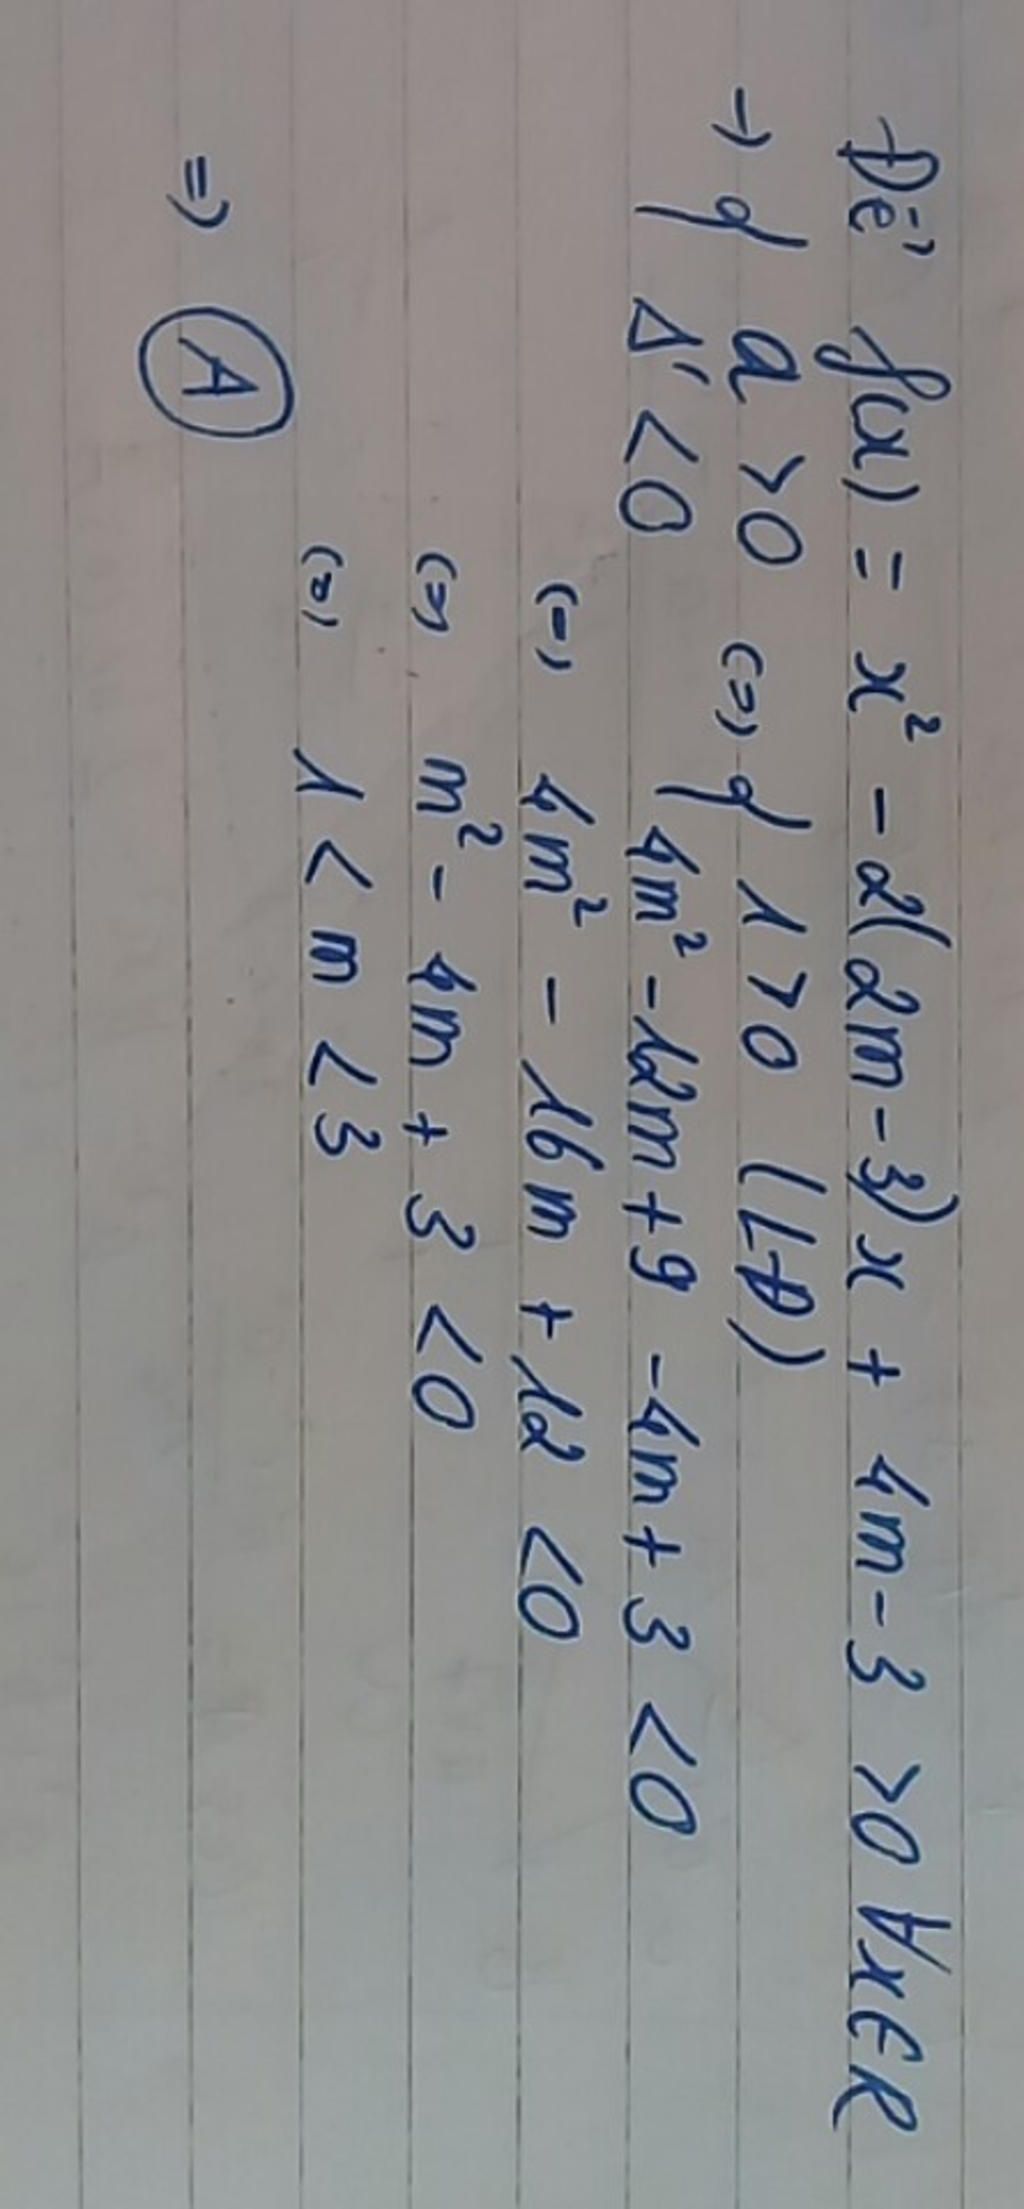 Để f(x) = x² - 2(2m-3)x + 4m-3 >0 ∀x∈R
→ { a >0 (=) { 1 >0 (LĐ)
Δ' <0 4m² -12m +9 -4m + 3 <0
(=) 4m² - 16m + 12 <0
(=) m² - 4m + 3 <0
(=) 1 < m < 3
=) A